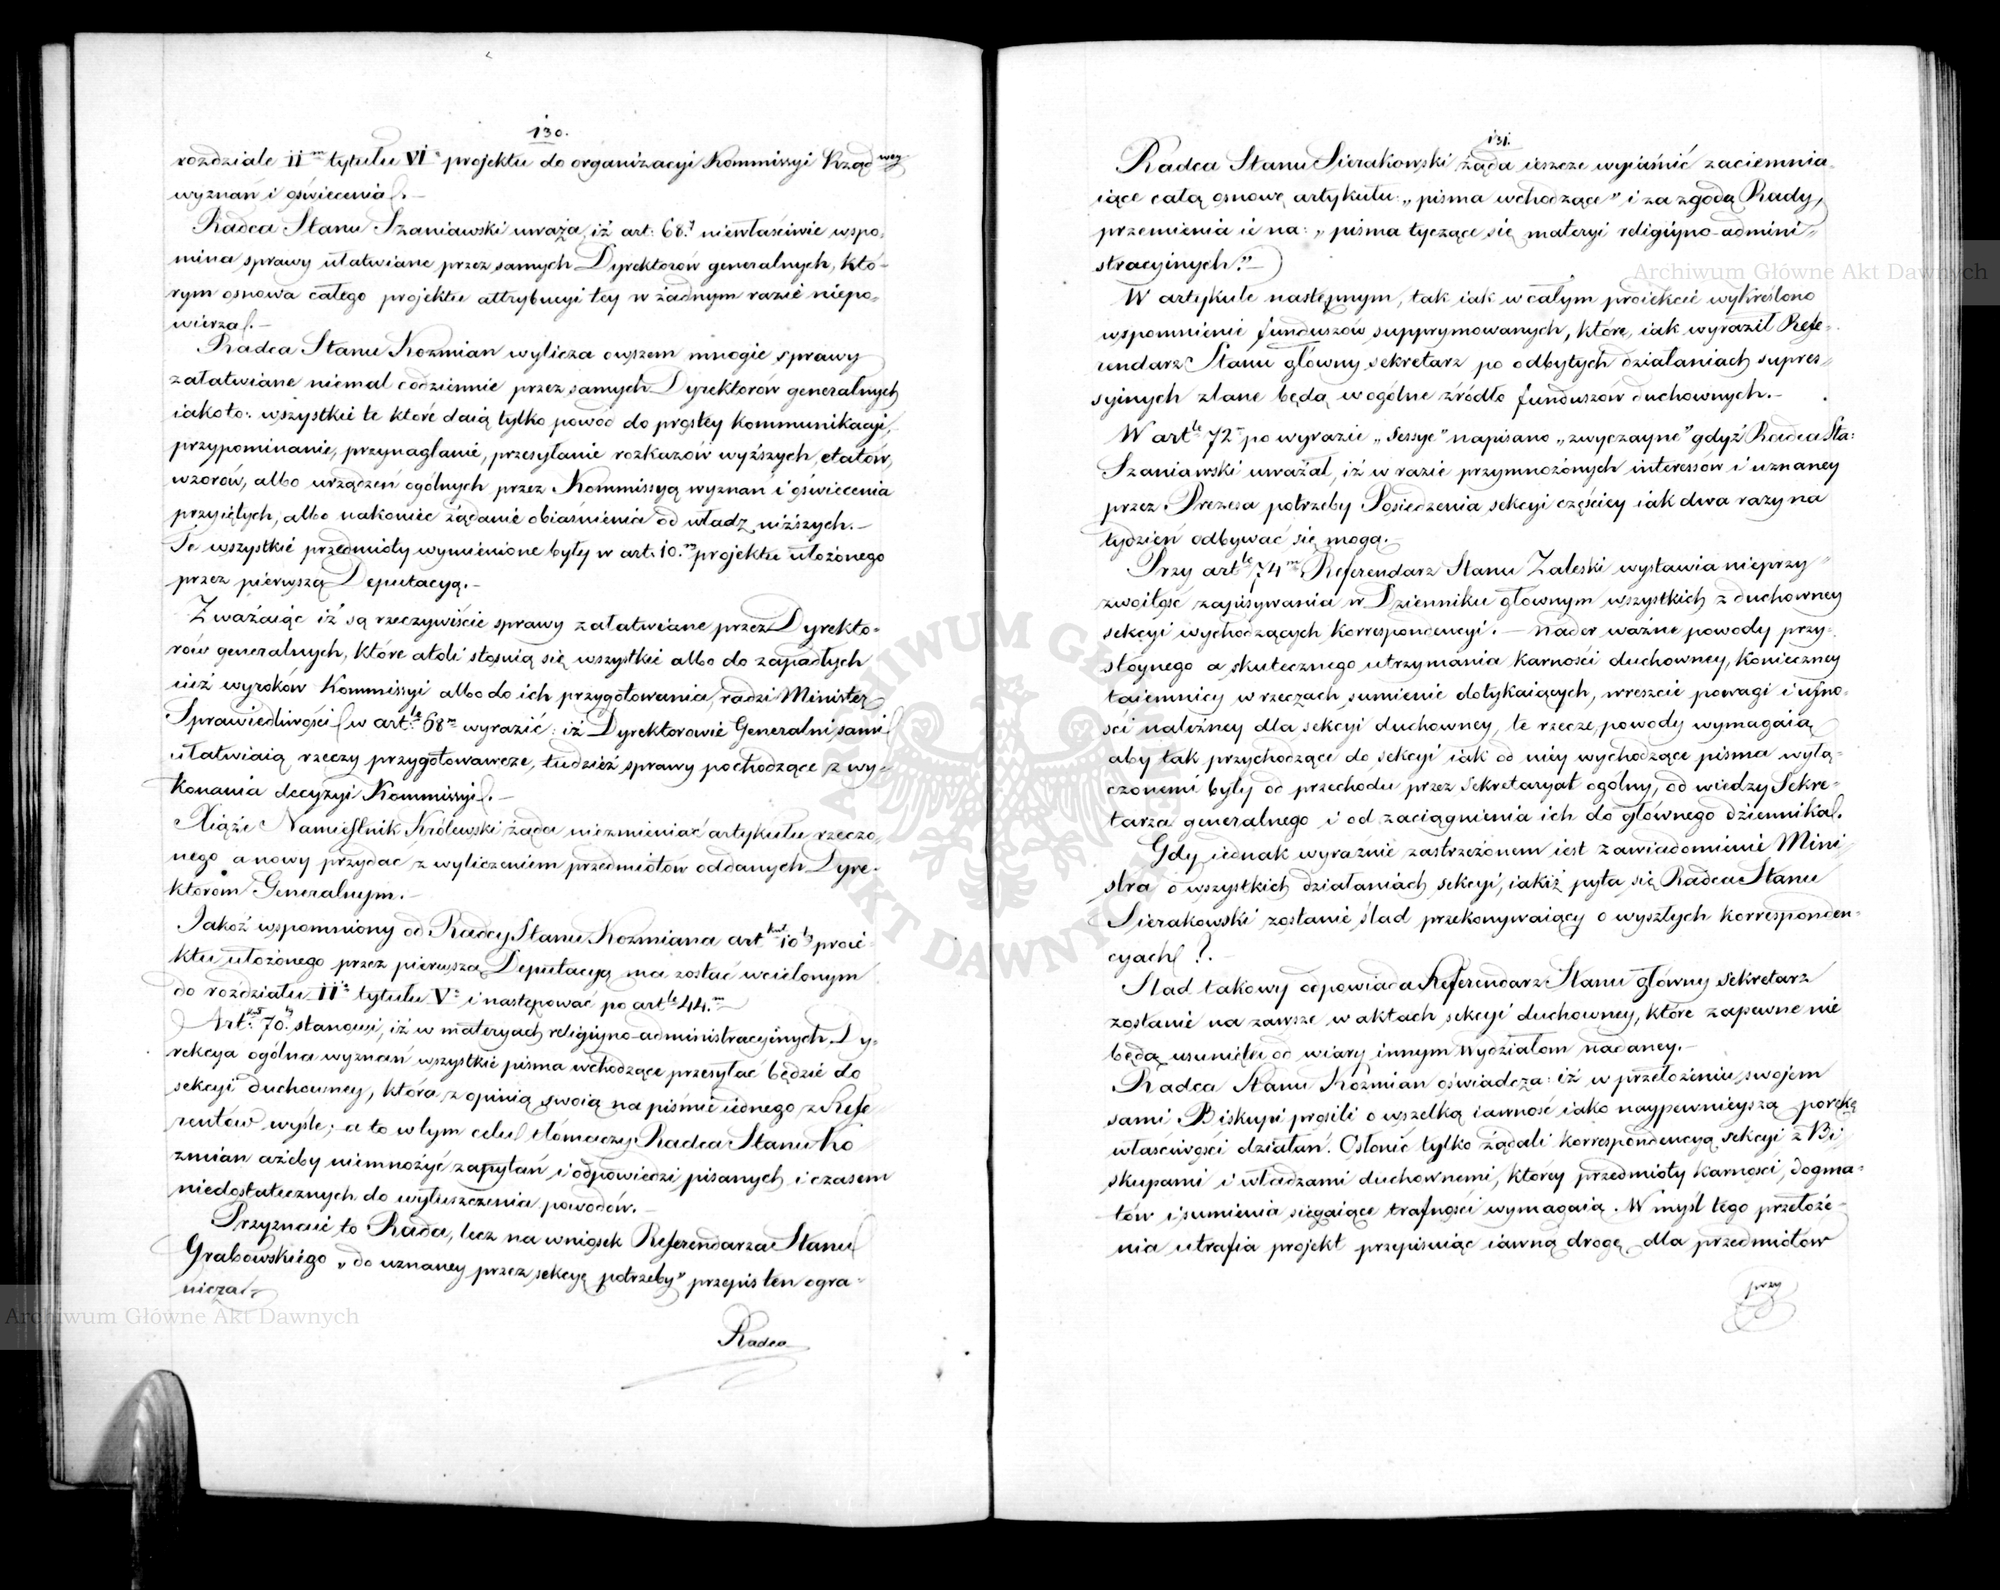 130.
rozdziale II<sup>m</sup> tytułu VI<sup>o</sup> projektu do organizacyi Kommissyi Rządowey
wyznań i oświecenia.—
Radca Stanu Szaniawski uważa, iż art: 68.<sup>y</sup> niewłaściwie wspo-
mina sprawy ułatwiane przez samych Dyrektorów generalnych, któ-
rym osnowa całego projektu attrybucyi tey w żadnym razie niepo-
wierza.—
Radca Stanu Koźmian wylicza owszem mnogie sprawy
załatwiane niemal codziennie przez samych Dyrektorów generalnych
iakoto: wszystkie te które daią tylko powód do prostey kommunikacyi,
przypominanie, przynaglanie, przesyłanie rozkazów wyższych, etatów,
wzorów, albo urządzeń ogólnych przez Kommissyą wyznań i oświecenia
przyiętych, albo nakoniec żądanie obiaśnienia od władz niższych.—
Te wszystkie przedmioty wymienione były w art. 10.<sup>m</sup> projektu ułożonego
przez pierwszą Deputacyą.—
Zważaiąc iż są rzeczywiście sprawy załatwiane przez Dyrekto-
rów generalnych, które atoli stosuią się wszystkie albo do zapadłych
iuż wyroków Kommissyi albo do ich przygotowania, radzi Minister
Sprawiedliwości w art:<sup>le</sup> 68<sup>m</sup> wyrazić: iż Dyrektorowie Generalni sami
ułatwiaią rzeczy przygotowawcze, tudzież sprawy pochodzące z wy-
konania decyzyi Kommissyi.—
Xiąże Namiestnik Królewski żąda niezmieniać artykułu rzeczo-
nego a nowy przydać z wyliczeniem przedmiotów oddanych Dyre-
ktorom Generalnym.—
Jakoż wspomniony od Radcy Stanu Koźmiana art<sup>kuł</sup> 10<sup>ty</sup> proie-
ktu ułożonego przez pierwszą Deputacyą ma zostać wcielonym
do rozdziału II<sup>o</sup> tytułu V<sup>o</sup> i następować po art<sup>le</sup> 44.<sup>m</sup>
Art:<sup>kuł</sup> 70.<sup>ty</sup> stanowi, iż w materyach religiyno-administracyinych Dy-
rekcya ogólna wyznań wszystkie pisma wchodzące przesyłać będzie do
sekcyi duchowney, która z opinią swoią na piśmie iednego z Refe-
rentów wyśle; a to w tym celu tłómaczy Radca Stanu Ko
źmian ażeby niemnożyć zapytań i odpowiedzi pisanych i czasem
niedostatecznych do wyłuszczenia powodów.—
Przyznaie to Rada, lecz na wniosek Referendarza Stanu
Grabowskiego „do uznaney przez sekcyę potrzeby” przepis ten ogra-
nicza.—
Radca
131.
Radca Stanu Sierakowski żąda ieszcze wyiaśnić zaciemnia-
iące całą osnowę artykułu: „pisma wchodzące” i za zgodą Rady,
przemienia ie na: „pisma tyczące się materyi religiyno-admini-
stracyinych.”—
W artykule następnym, tak iak w całym proiekcie wykreślono
wspomnienie funduszów supprymowanych, które, iak wyraził Refe-
rendarz Stanu główny sekretarz po odbytych działaniach supres-
syinych zlane będą w ogólne źródło funduszów duchownych.—
W art<sup>le</sup> 72<sup>m</sup> po wyrazie „Sessye” napisano „zwyczayne” gdyż Radca Sta:
Szaniawski uważał, iż w razie przymnożonych interessów i uznaney
przez Prezesa potrzeby Posiedzenia sekcyi częściey iak dwa razy na
tydzień odbywać się mogą.—
Przy art<sup>le</sup> 74<sup>m</sup> Referendarz Stanu Zaleski wystawia nieprzy-
zwoitość zapisywania w Dzienniku głownym wszystkich z duchowney
sekcyi wychodzących korrespondencyi.— nader ważne powody przy-
stoynego a skutecznego utrzymania karności duchowney, konieczney
taiemnicy w rzeczach sumienie dotykaiących, wreszcie powagi i ufno-
ści należney dla sekcyi duchowney, te rzecze, powody wymagaią
aby tak przychodzące do sekcyi iak od niey wychodzące pisma wyłą-
czonemi były od przechodu przez sekretaryat ogólny, od wiedzy Sekre-
tarza generalnego i od zaciągnienia ich do głównego dziennika.
Gdy iednak wyraźnie zastrzeżonem iest zawiadomienie Mini
stra o wszystkich działaniach sekcyi, iakiż pyta się Radca Stanu
Sierakowski zostanie ślad przekonywaiący o wyszłych korresponden-
cyach?.—
Slad takowy odpowiada Referendarz Stanu główny sekretarz
zostanie na zawsze w aktach sekcyi duchowney, które zapewne nie
będą usunięte od wiary innym Wydziałom nadaney.—
Radca Stanu Koźmian oświadcza: iż w przełożeniu swojem
sami Biskupi prosili o wszelką iawność iako naypewnieyszą porękę
właściwości działań. Osłonić tylko żądali korrespondencyą sekcyi z Bi
skupami i władzami duchownemi, którey przedmioty karności, dogma-
tów i sumienia sięgaiące trafności wymagaią. W myśl tego przełoże-
nia utrafia projekt przepisuiąc iawną drogę dla przedmiotów
przy
Archiwum Główne Akt Dawnych
Archiwum Główne Akt Dawnych
ARCHIWUM GŁÓWNE AKT DAWNYCH